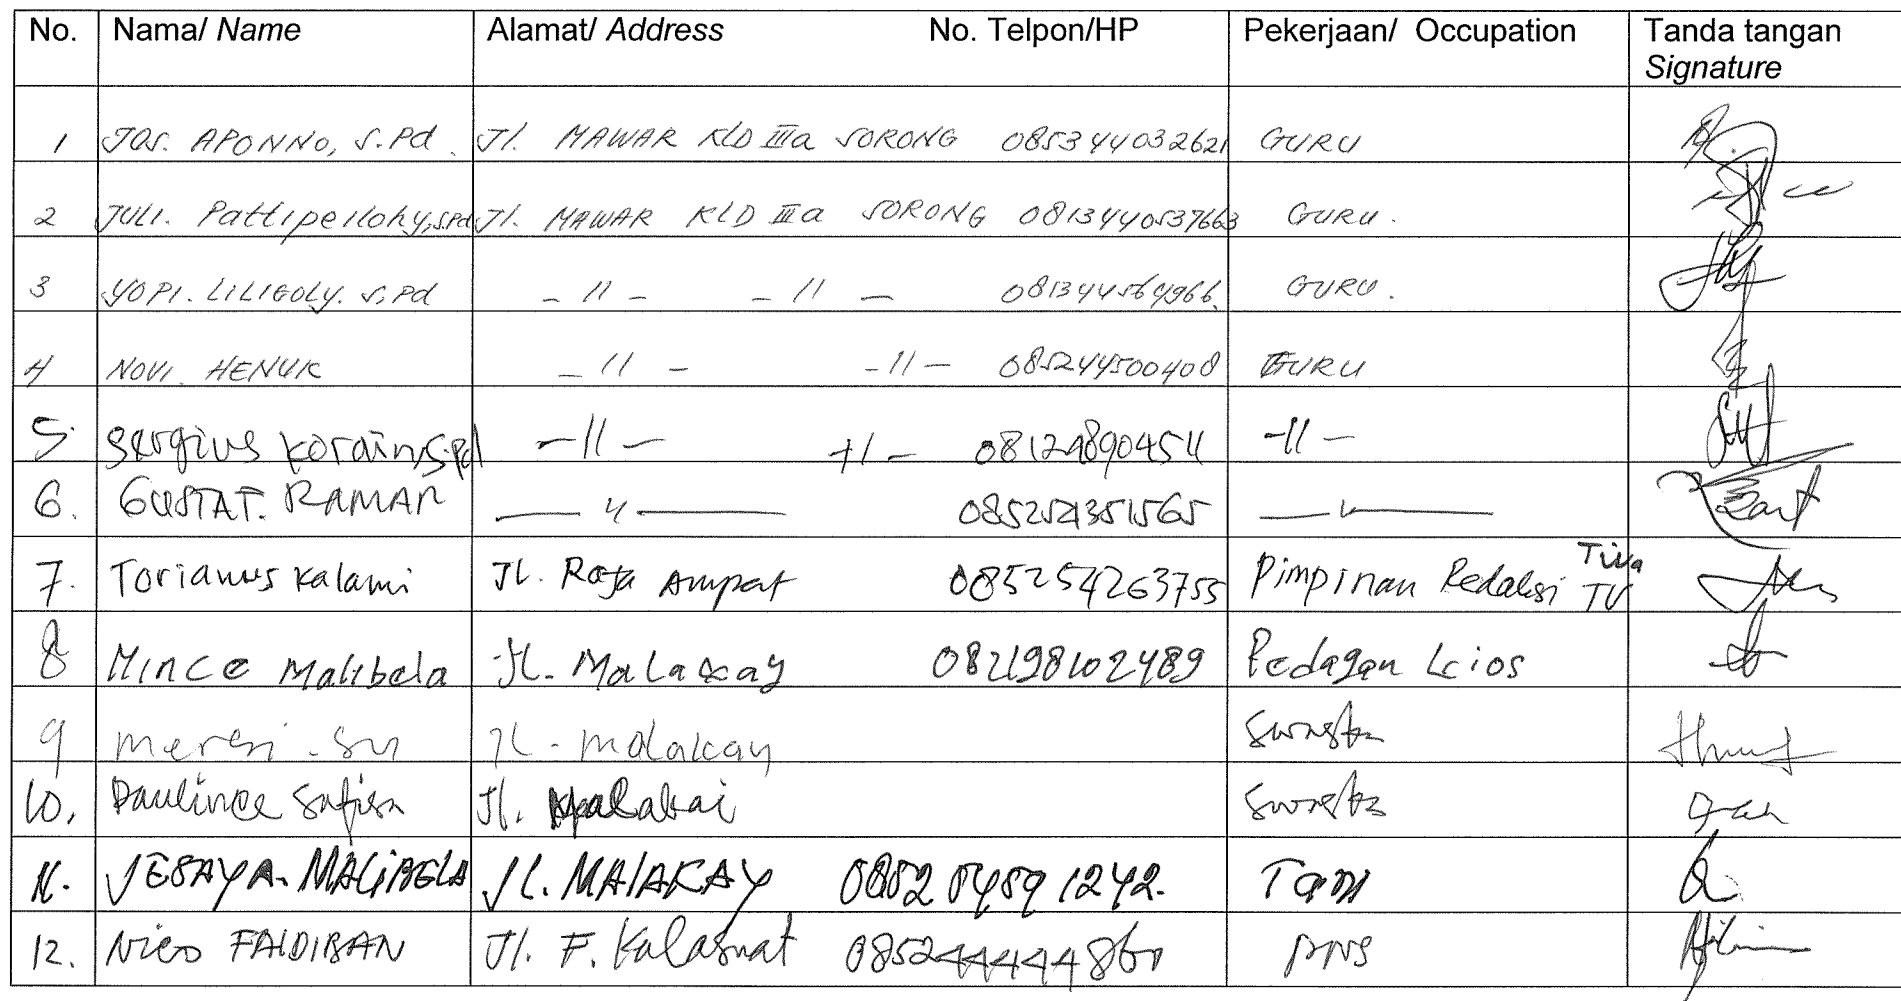 No. Nama/ Name Alamat/ Address No. Telpon/HP Pekerjaan/ Occupation Tanda tangan
Signature
1 JOS. APONNO, S.Pd. Jl. MAWAR KLD IIIa SORONG 085344032621 GURU
2 JULI. Pattipeilohy, S.Pd Jl. MAWAR KLD IIIa SORONG 0813440537663 GURU.
3 YOPI. LILIGOLY. S.Pd - 11 - - 11 - 081344564966. GURU.
4 NOVI. HENUK - 11 - - 11 - 085244500408 GURU
5 Sergius Kordin, S.Pd - 11 - 081248904511 - 11 -
6. GUSTAT. RAMAR 085254351565
7. Torianus Kalami Jl. Raja Ampat 085254263755 Pimpinan Redaksi Tiva
TV
8 Mince Malibela Jl. Malakay 082198102489 Pedagan kios
9 Jl. malakay Swasta
10. Jl. Malakai Swasta
11. YESAYA. MALIBELA Jl. MALAKAY 085254591242. Tani
12. Nico FALDIBAN Jl. F. Kalasuat PNS